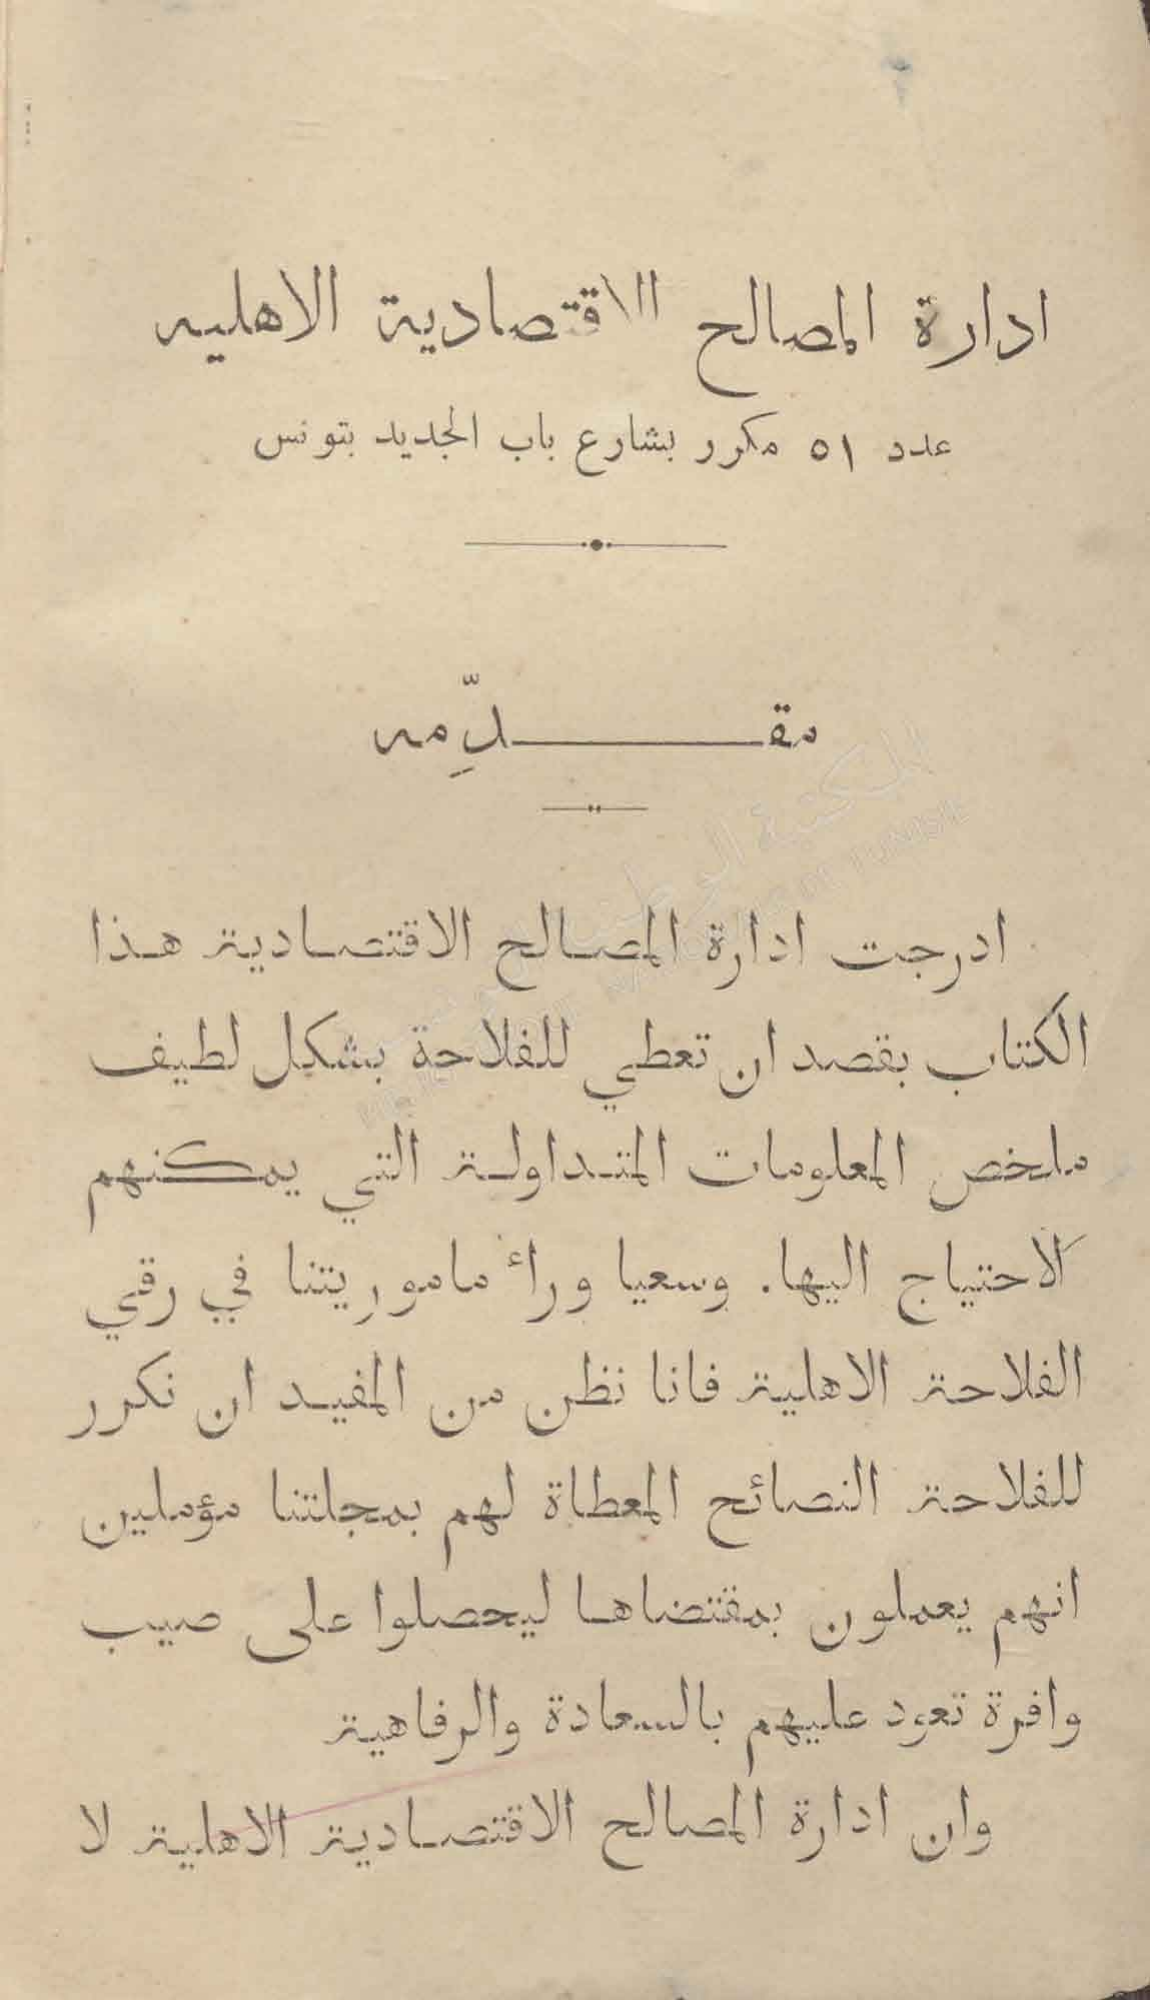 ادارة المصالح الاقتصادية الاهليه
عدد ٥١ مكرر بشارع باب الجديد بتونس
مقـــــدّمه
ادرجت ادارة المصالح الاقتصادية هذا
الكتاب بقصد ان تعطي للفلاحة بشكل لطيف
ملخص المعلومات المتداولة التي يمكنهم
الاحتياج اليها. وسعيا وراء ماموريتنا في رقي
الفلاحة الاهلية فانا نظن من المفيد ان نكرر
للفلاحة النصائح المعطاة لهم بمجلتنا مؤملين
انهم يعملون بمقتضاها ليحصلوا على صيب
وافرة تعود عليهم بالسعادة والرفاهية
وان ادارة المصالح الاقتصادية الاهلية لا